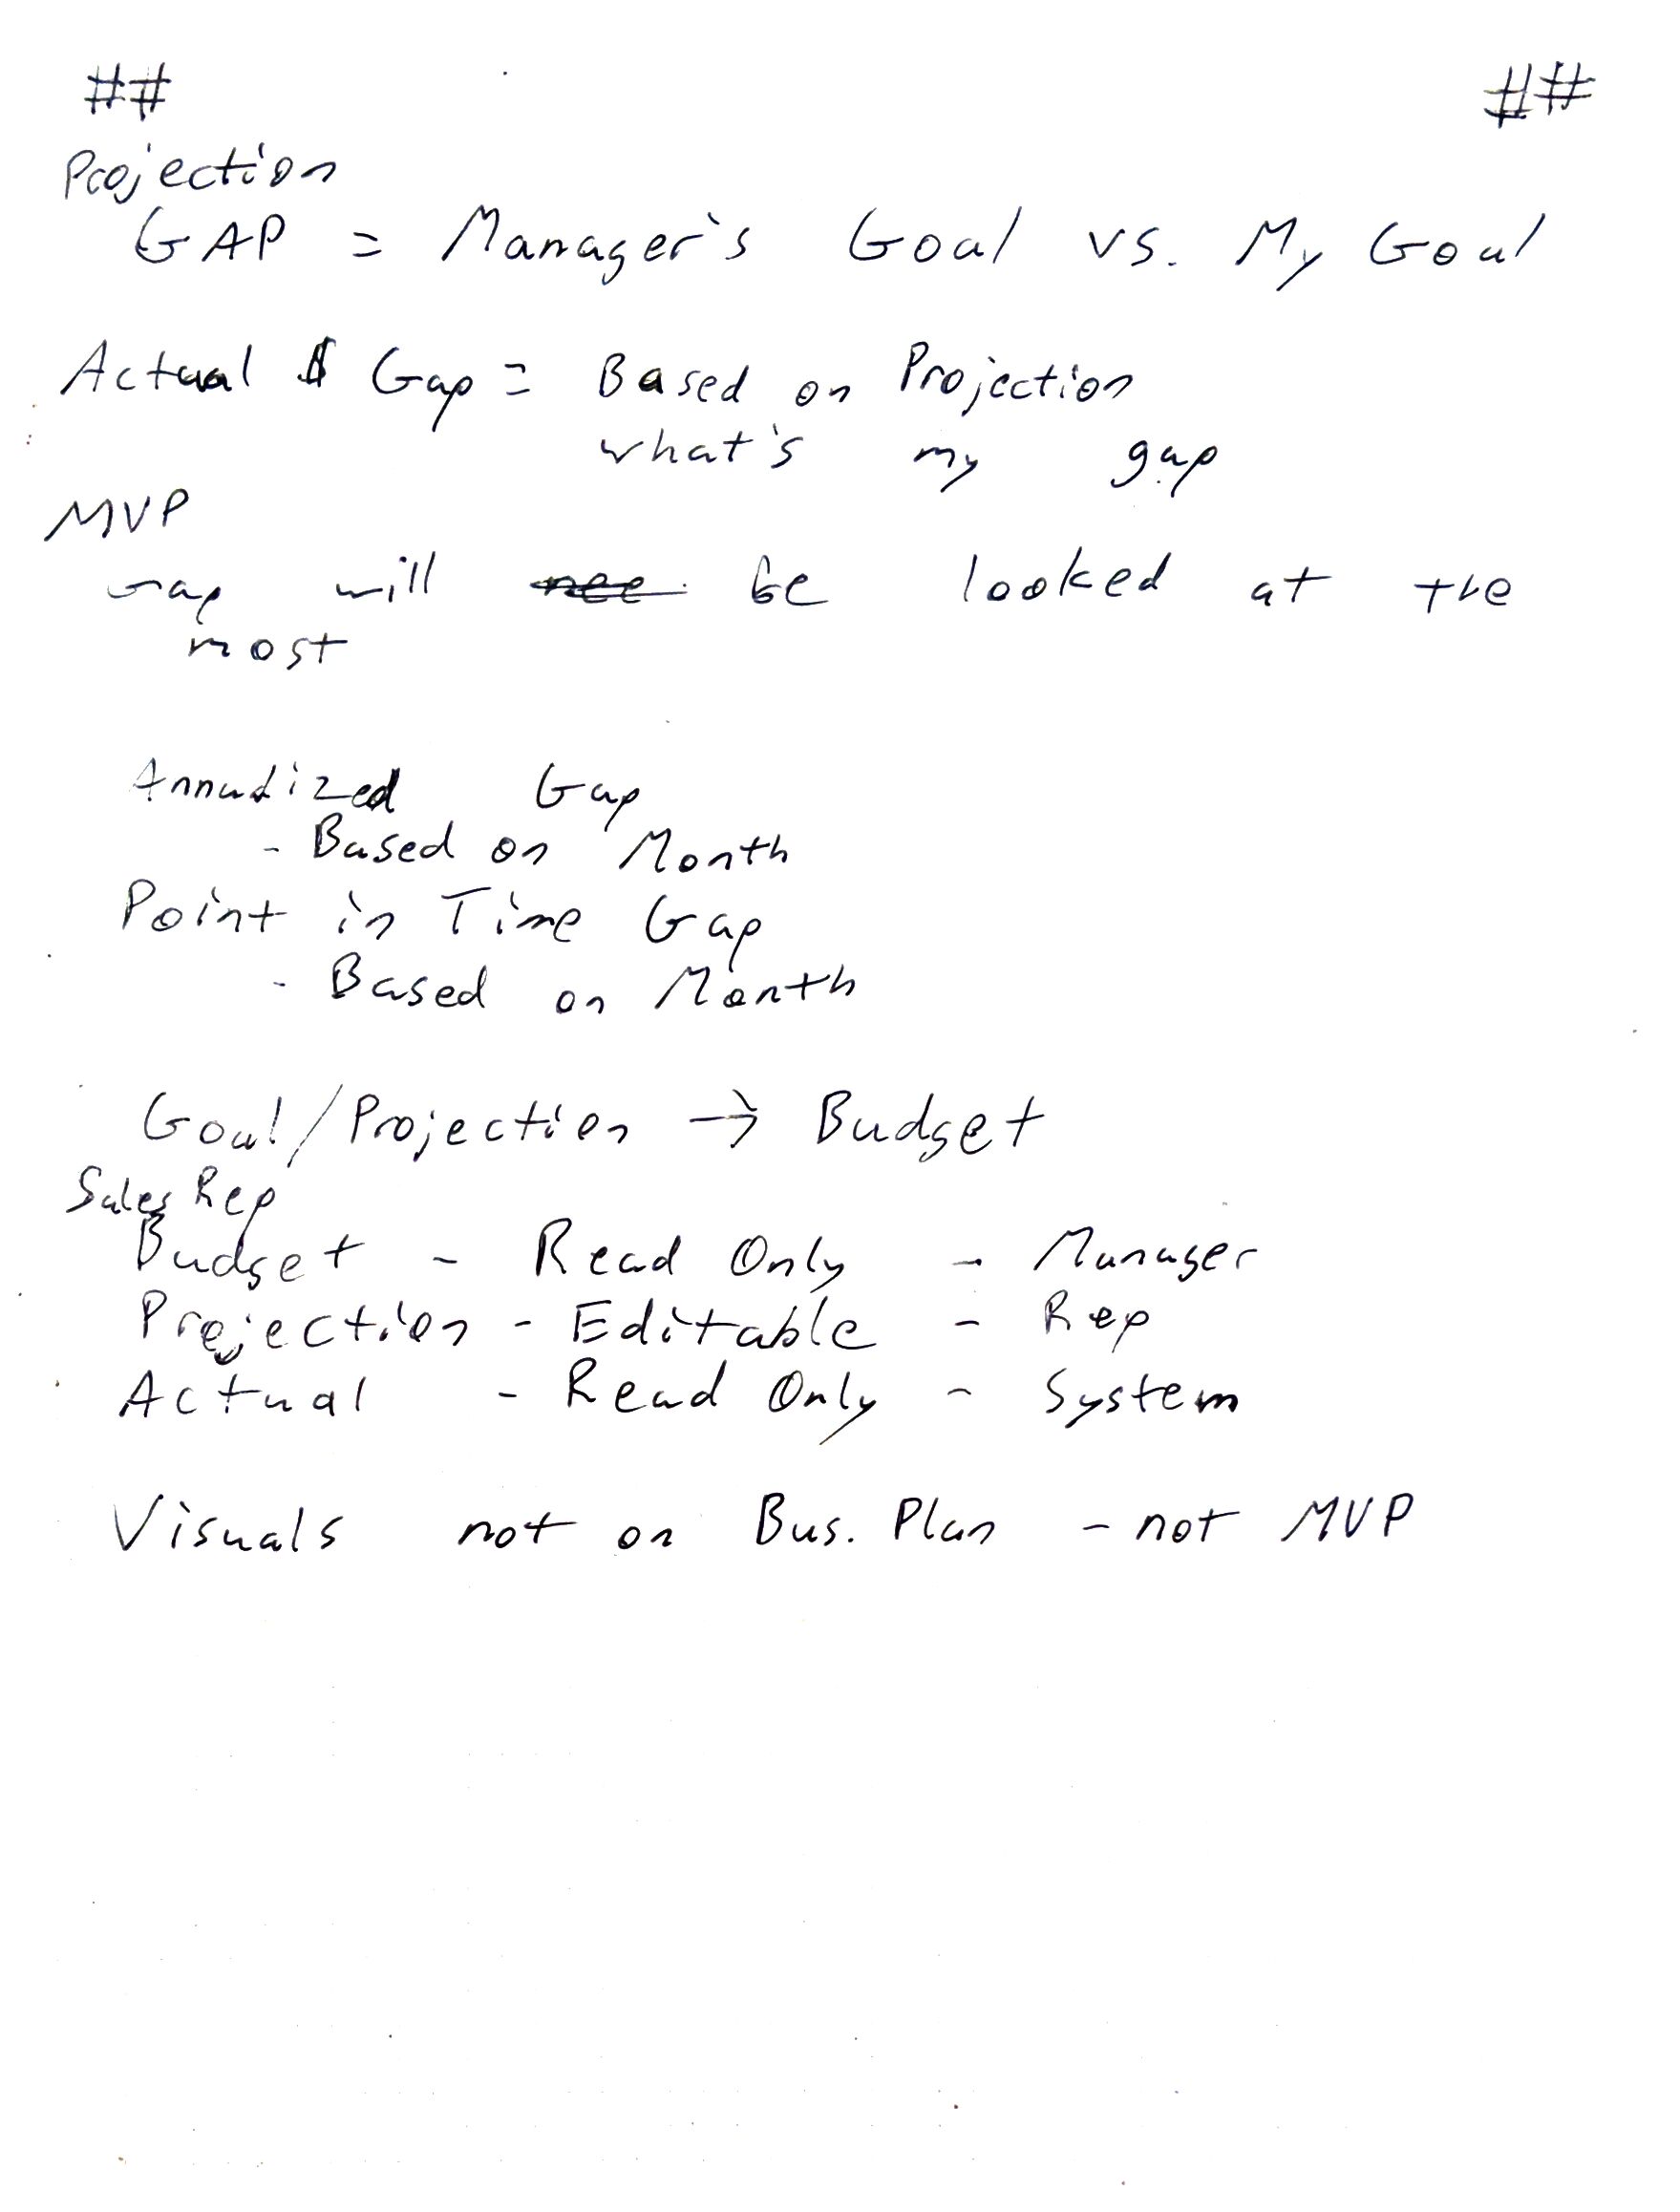 ## ##
Projection
GAP = Manager's Goal vs. My Goal
Actual $ Gap = Based on Projection
what's my gap
MVP
Gap will be looked at the
most
Annualized Gap
- Based on Month
Point in Time Gap
- Based on Month
Goal/Projection → Budget
Sales Rep
Budget - Read Only - Manager
Projection - Editable - Rep
Actual - Read Only - System
Visuals not on Bus. Plan - not MVP